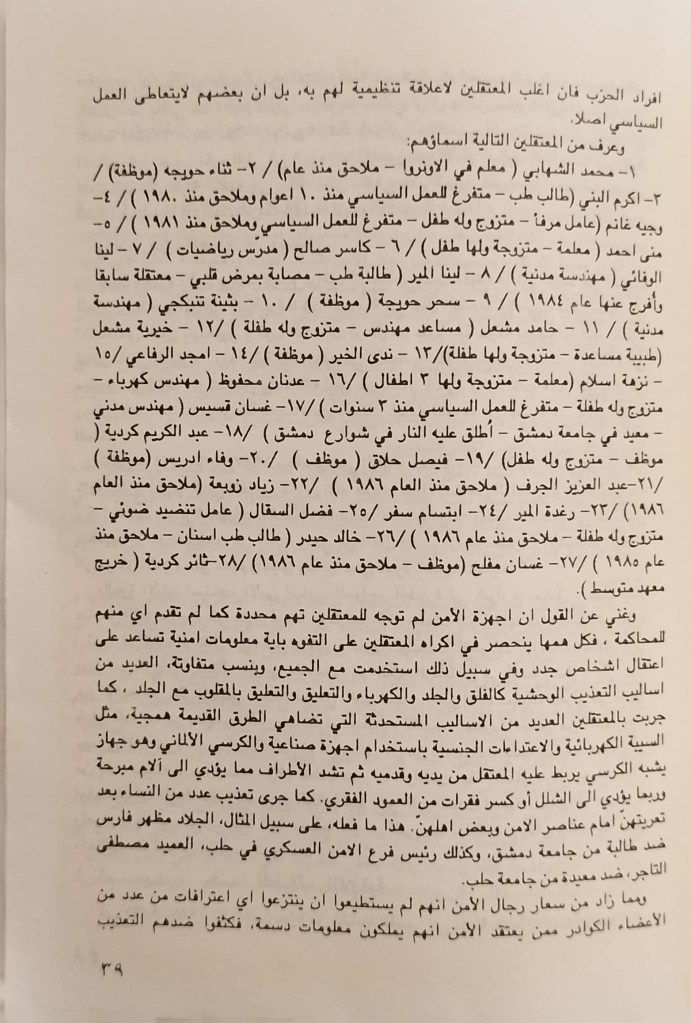 افراد الحزب فان اغلب المعتقلين لاعلاقة تنظيمية لهم به، بل ان بعضهم لايتعاطى العمل
السياسي اصلا.
وعرف من المعتقلين التالية اسماؤهم:
١- محمد الشهابي ( معلم في الاونروا - ملاحق منذ عام) / ٢- ثناء حويجه (موظفة) /
٣- اكرم البني (طالب طب - متفرغ للعمل السياسي منذ ١٠ اعوام وملاحق منذ ١٩٨٠ ) / ٤-
وجيه غانم (عامل مرفأ - متزوج وله طفل - متفرغ للعمل السياسي وملاحق منذ ١٩٨١ ) / ٥-
منى احمد ( معلمة - متزوجة ولها طفل ) / ٦ - كاسر صالح ( مدرّس رياضيات ) / ٧ - لينا
الوفائي ( مهندسة مدنية ) / ٨ - لينا المير ( طالبة طب - مصابة بمرض قلبي - معتقلة سابقا
وأفرج عنها عام ١٩٨٤ ) / ٩ - سحر حويجة ( موظفة ) / ١٠ - بثينة تنبكجي ( مهندسة
مدنية ) / ١١ - حامد مشعل ( مساعد مهندس - متزوج وله طفلة ) /١٢ - خيرية مشعل
(طبيبة مساعدة - متزوجة ولها طفلة)/١٣ - ندى الخير ( موظفة ) /١٤ - امجد الرفاعي /١٥
- نزهة اسلام (معلمة - متزوجة ولها ٣ اطفال ) /١٦ - عدنان محفوظ ( مهندس كهرباء -
متزوج وله طفلة - متفرغ للعمل السياسي منذ ٣ سنوات ) /١٧- غسان قسيس ( مهندس مدني
- معيد في جامعة دمشق - أُطلق عليه النار في شوارع دمشق ) /١٨- عبد الكريم كردية (
موظف - متزوج وله طفل) /١٩- فيصل حلاق ( موظف ) /٢٠- وفاء ادريس (موظفة )
/٢١-عبد العزيز الجرف ( ملاحق منذ العام ١٩٨٦ ) /٢٢- زياد زوبعة (ملاحق منذ العام
١٩٨٦) /٢٣- رغدة المير /٢٤- ابتسام سفر /٢٥- فضل السقال ( عامل تنضيد ضوئي -
متزوج وله طفلة - ملاحق منذ عام ١٩٨٦ ) /٢٦- خالد حيدر ( طالب طب اسنان - ملاحق منذ
عام ١٩٨٥ ) /٢٧- غسان مفلح (موظف - ملاحق منذ عام ١٩٨٦) /٢٨-ثائر كردية ( خريج
معهد متوسط ).
وغني عن القول ان اجهزة الأمن لم توجه للمعتقلين تهم محددة كما لم تقدم اي منهم
للمحاكمة ، فكل همها ينحصر في اكراه المعتقلين على التفوه باية معلومات امنية تساعد على
اعتقال اشخاص جدد وفي سبيل ذلك استخدمت مع الجميع، وبنسب متفاوتة، العديد من
اساليب التعذيب الوحشية كالفلق والجلد والكهرباء والتعليق والتعليق بالمقلوب مع الجلد ، كما
جربت بالمعتقلين العديد من الاساليب المستحدثة التي تضاهي الطرق القديمة همجية، مثل
السيبة الكهربائية والاعتداءات الجنسية باستخدام اجهزة صناعية والكرسي الألماني وهو جهاز
يشبه الكرسي يربط عليه المعتقل من يديه وقدميه ثم تشد الأطراف مما يؤدي الى آلام مبرحة
وربما يؤدي الى الشلل أو كسر فقرات من العمود الفقري. كما جرى تعذيب عدد من النساء بعد
تعريتهنّ امام عناصر الامن وبعض اهلهنّ. هذا ما فعله، على سبيل المثال، الجلاد مظهر فارس
ضد طالبة من جامعة دمشق، وكذلك رئيس فرع الامن العسكري في حلب، العميد مصطفى
التاجر، ضد معيدة من جامعة حلب.
ومما زاد من سعار رجال الأمن انهم لم يستطيعوا ان ينتزعوا اي اعترافات من عدد من
الأعضاء الكوادر ممن يعتقد الأمن انهم يملكون معلومات دسمة، فكثفوا ضدهم التعذيب
٣٩